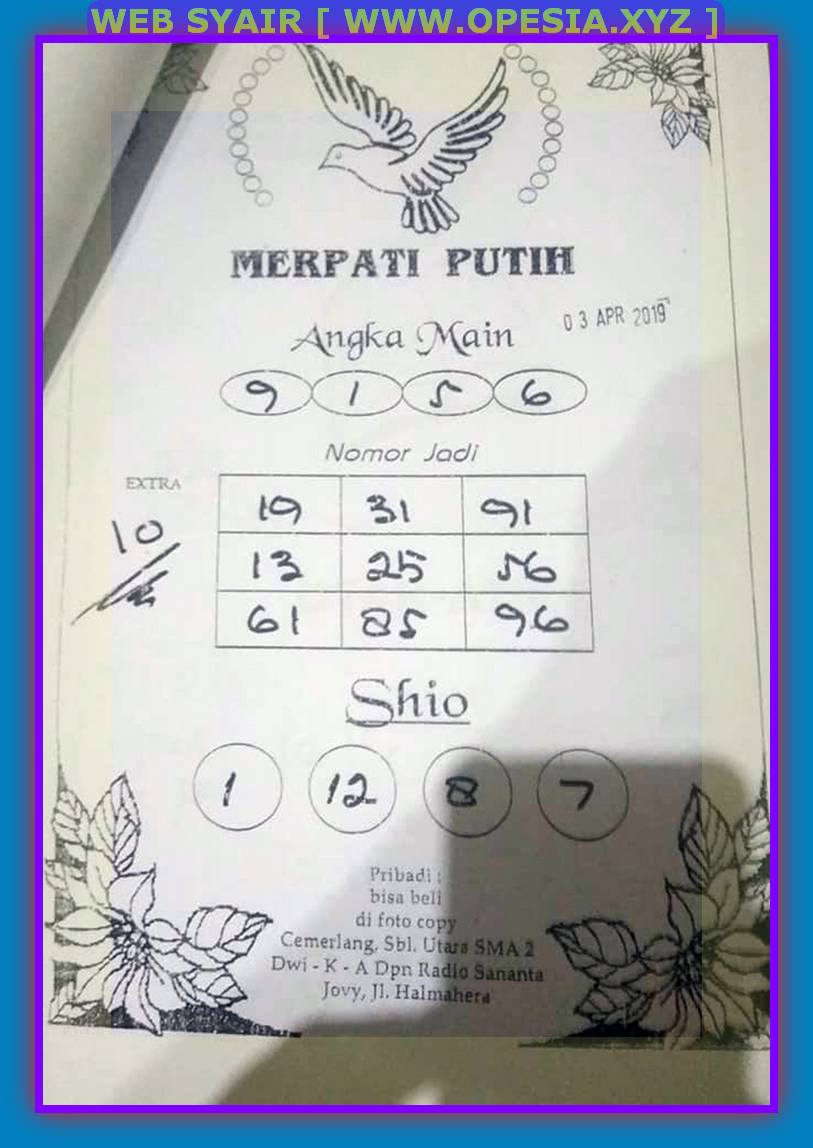 WEB SYAIR [ WWW.OPESIA.XYZ ]
MERPATI PUTIH
03 APR 2019
Angka Main
9 1 5 6
Nomor Jadi
EXTRA
10
19 31 91
13 25 56
61 85 96
Shio
1 12 8 7
Pribadi :
bisa beli
di foto copy
Cemerlang, Sbl. Utara SMA 2
Dwi - K - A Dpn Radio Sananta
Jovy, Jl. Halmahera